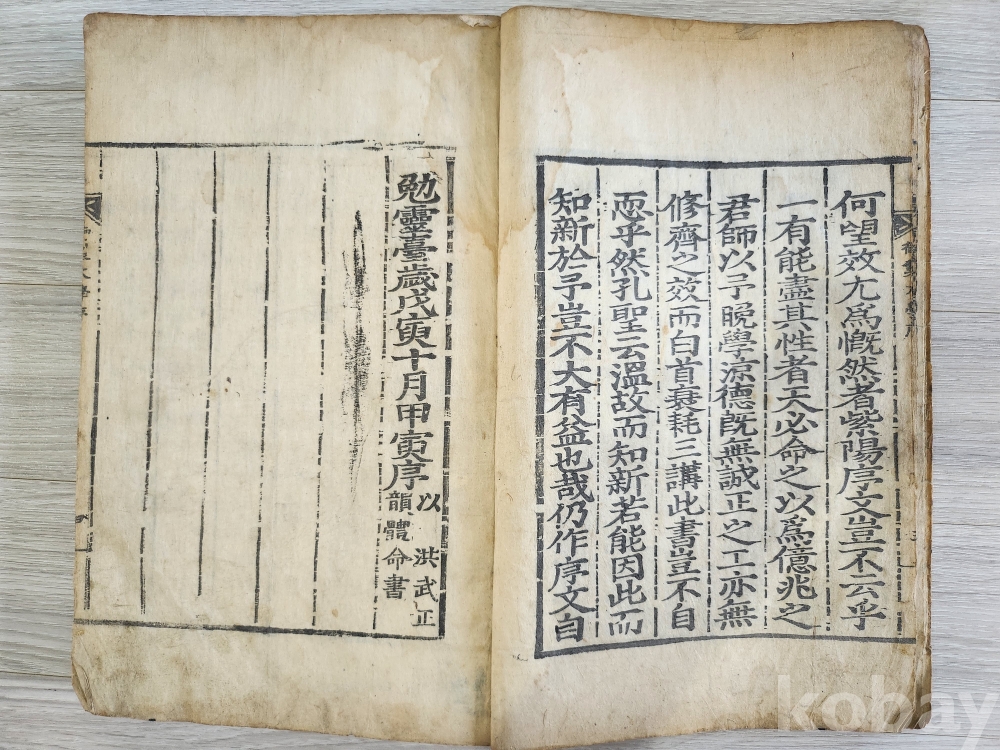 何望效尤爲慨然者紫陽序文豈不云乎
一有能盡其性者天必命之以爲億兆之
君師以予晚學涼德旣無誠正之工亦無
修齊之效而白首衰耗三講此書豈不自
恧乎然孔聖云溫故而知新若能因此而
知新於予豈不大有益也哉仍作序文自
勉靈臺歲戊寅十月甲寅序
以洪武正
韻體命書
kobay